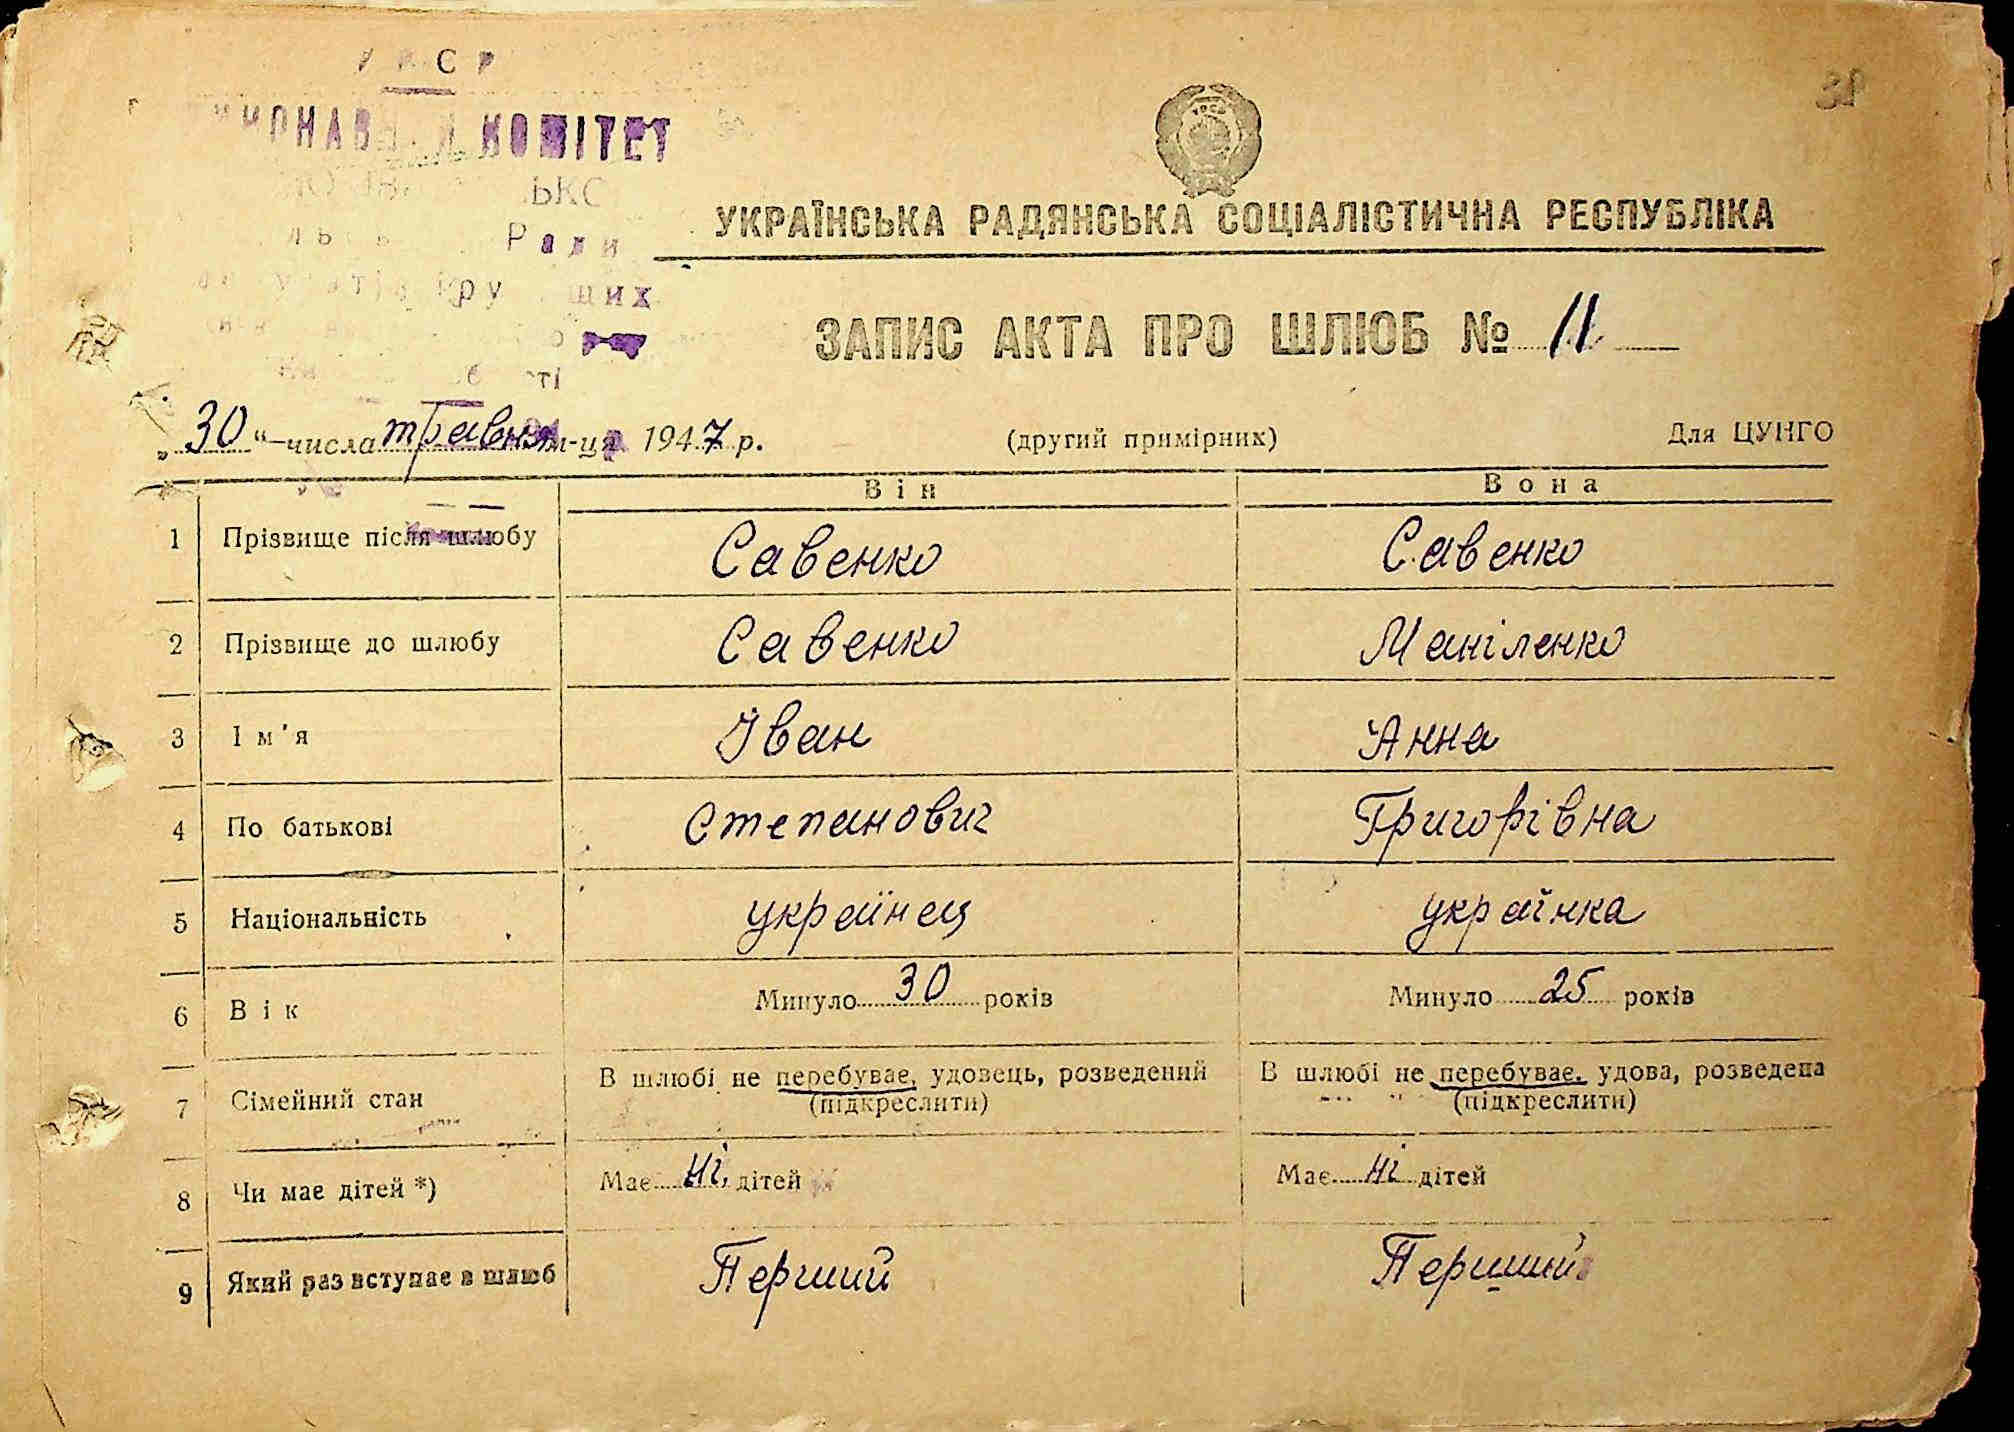 КОМІТЕТ
Ради
УКРАЇНСЬКА РАДЯНСЬКА СОЦІАЛІСТИЧНА РЕСПУБЛІКА
ЗАПИС АКТА ПРО ШЛЮБ № 11
„30“ числа травня м-ця 1947 р. (другий примірник) Для ЦУНГО
Він Вона
1 Прізвище після шлюбу Савенко Савенко
2 Прізвище до шлюбу Савенко Маніленко
3 Ім'я Іван Анна
4 По батькові Степанович Григорівна
5 Національність українец українка
6 Вік Минуло 30 років Минуло 25 років
7 Сімейний стан В шлюбі не перебуває, удовець, розведений В шлюбі не перебуває, удова, розведена
(підкреслити) (підкреслити)
8 Чи має дітей *) Має ні дітей Має ні дітей
9 Який раз вступає в шлюб Перший Перший